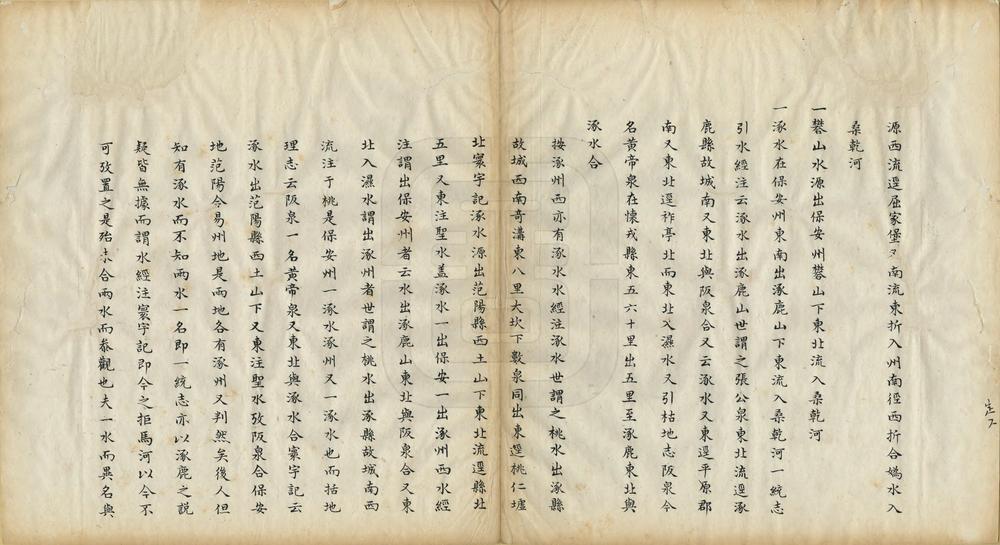 源西流逕屈家堡又南流東折入州南徑西折合媯水入
桑乾河
一礬山水源出保安州礬山下東北流入桑乾河
一涿水在保安州東南出涿鹿山下東流入桑乾河一統志
引水經注云涿水出涿鹿山世謂之張公泉東北流逕涿
鹿縣故城南又東北與阪泉合又云涿水又東逕平原郡
南又東北逕祚亭北而東北入濕水又引枯地志阪泉今
名黄帝泉在懷戎縣東五六十里出五里至涿鹿東北與
涿水合
按涿州西亦有涿水水經注涿水世謂之桃水出涿縣
故城西南奇溝東八里大坎下數泉同出東逕桃仁墟
北寰宇記涿水源出范陽縣西土山下東北流逕縣北
五里又東注聖水盖涿水一出保安一出涿州西水經
注謂出保安州者云水出涿鹿山東北與阪泉合又東
北入濕水謂出涿州者世謂之桃水出涿縣故城南西
流注于桃是保安州一涿水涿州又一涿水也而括地
理志云阪泉一名黄帝泉又東北與涿水合寰宇記云
涿水出范陽縣西土山下又東注聖水攷阪泉合保安
地范陽今易州地是兩地各有涿州又判然矣後人但
知有涿水而不知兩水一名即一統志亦以涿鹿之說
疑皆無據而謂水經注寰宇記即今之拒馬河以今不
可攷置之是殆未合兩水而叅觀也夫一水而異名與